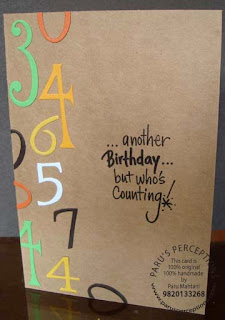 3
4
6
5
7
4
4
... another
Birthday...
but who's
Counting!
PARU'S PERCEPTI
This card is
100% original
100% handmade
by
Paru Mahtani
9820133268